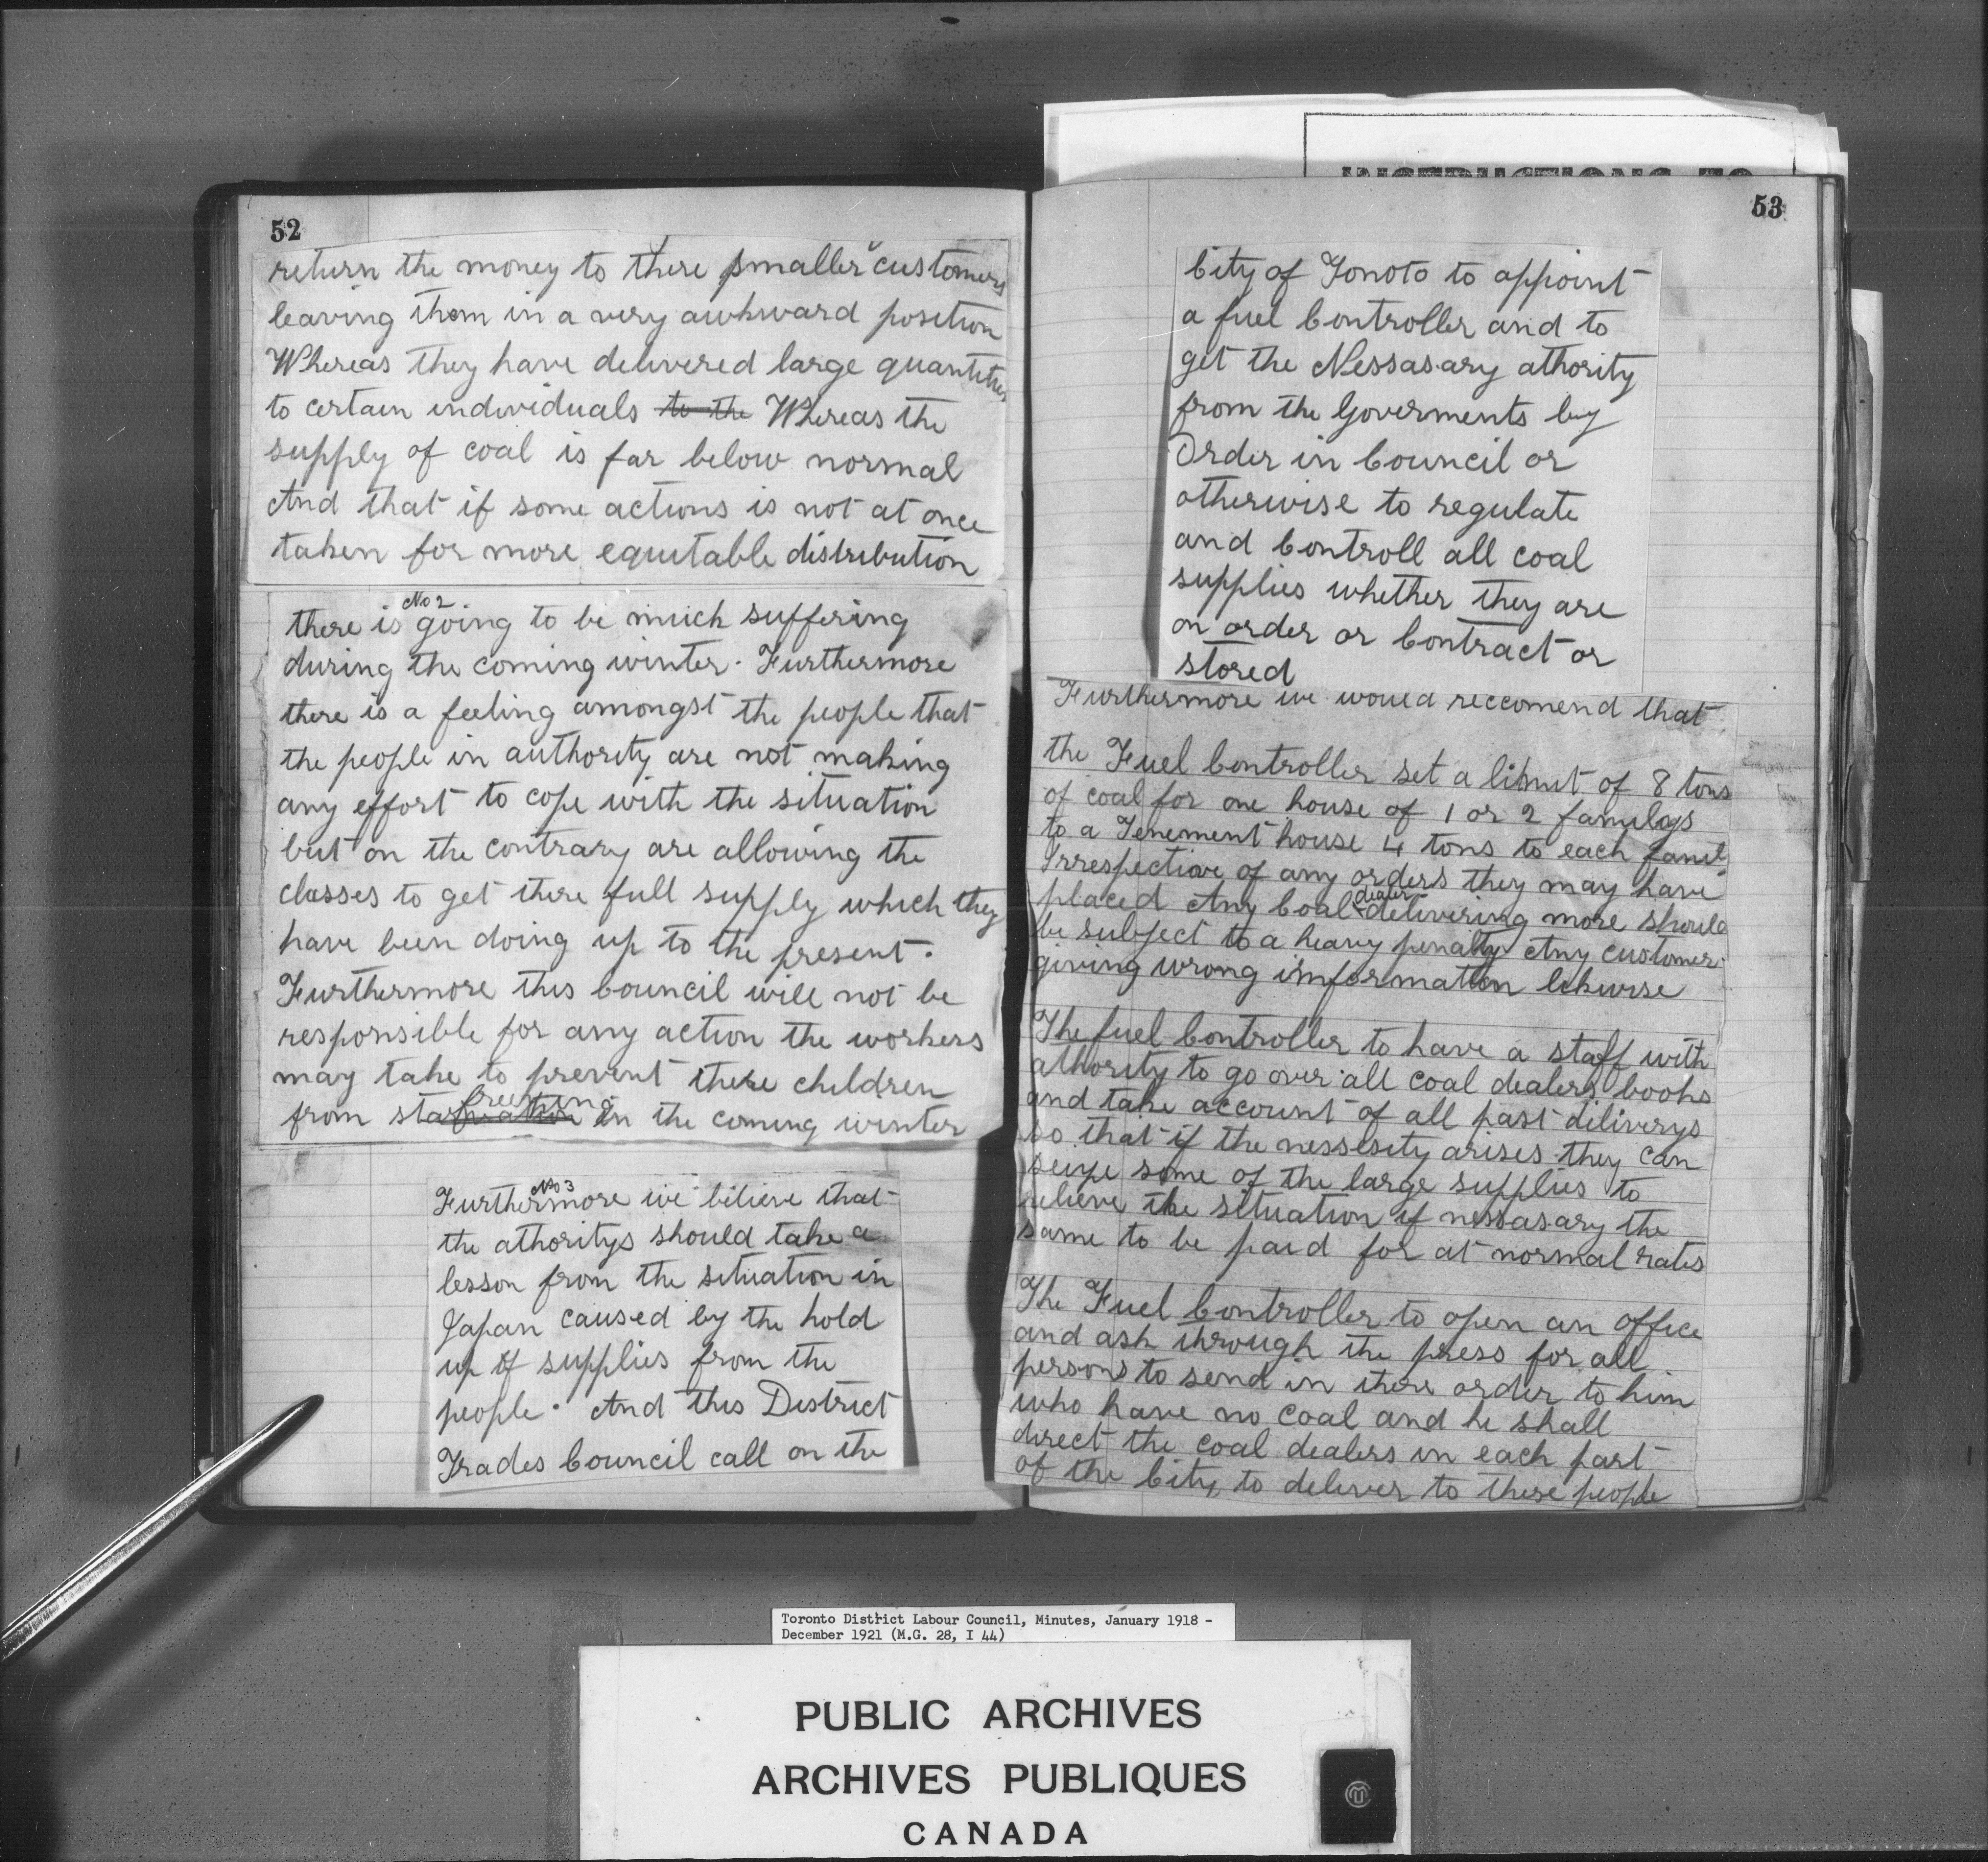 52
return the money to there smaller customers
leaving them in a very awkward position
Whereas they have delivered large quantities
to certain individuals to the Whereas the
supply of coal is far below normal
And that if some actions is not at once
taken for more equitable distribution
No 2
there is going to be much suffering
during the coming winter. Furthermore
there is a feeling amongst the people that
the people in authority are not making
any effort to cope with the situation
but on the contrary are allowing the
classes to get there full supply which they
have been doing up to the present.
Furthermore this Council will not be
responsible for any action the workers
may take to prevent there children
freezing
from starvation in the coming winter
No 3
Furthermore we believe that
the athoritys should take a
lesson from the situation in
Japan caused by the hold
up of supplies from the
people. And this District
Trades Council call on the
INSTRUCTIONS TO
53
City of Tonoto to appoint
a fuel Controller and to
get the Nessasary athority
from the Goverments by
Order in Council or
otherwise to regulate
and Controll all coal
supplies whether they are
on order or Contract or
stored
Furthermore we would reccomend that
the Fuel Controller set a limit of 8 tons
of coal for one house of 1 or 2 familys
to a Tenement house 4 tons to each famil
Irrespective of any orders they may have
dealer
placed Any Coal delivering more should
be subject to a heavy penalty Any customer
giving wrong imformation likwise
The fuel Controller to have a staff with
athority to go over all coal dealers books
and take account of all past deliverys
so that if the nessesity arises they can
seize some of the large supplies to
relieve the situation if nessasary the
same to be paid for at normal rates
The Fuel Controller to open an office
and ask through the press for all
persons to send in there order to him
who have no coal and he shall
direct the coal dealers in each part
of the City to deliver to these people
Toronto District Labour Council, Minutes, January 1918 -
December 1921 (M.G. 28, I 44)
PUBLIC ARCHIVES
ARCHIVES PUBLIQUES
CANADA